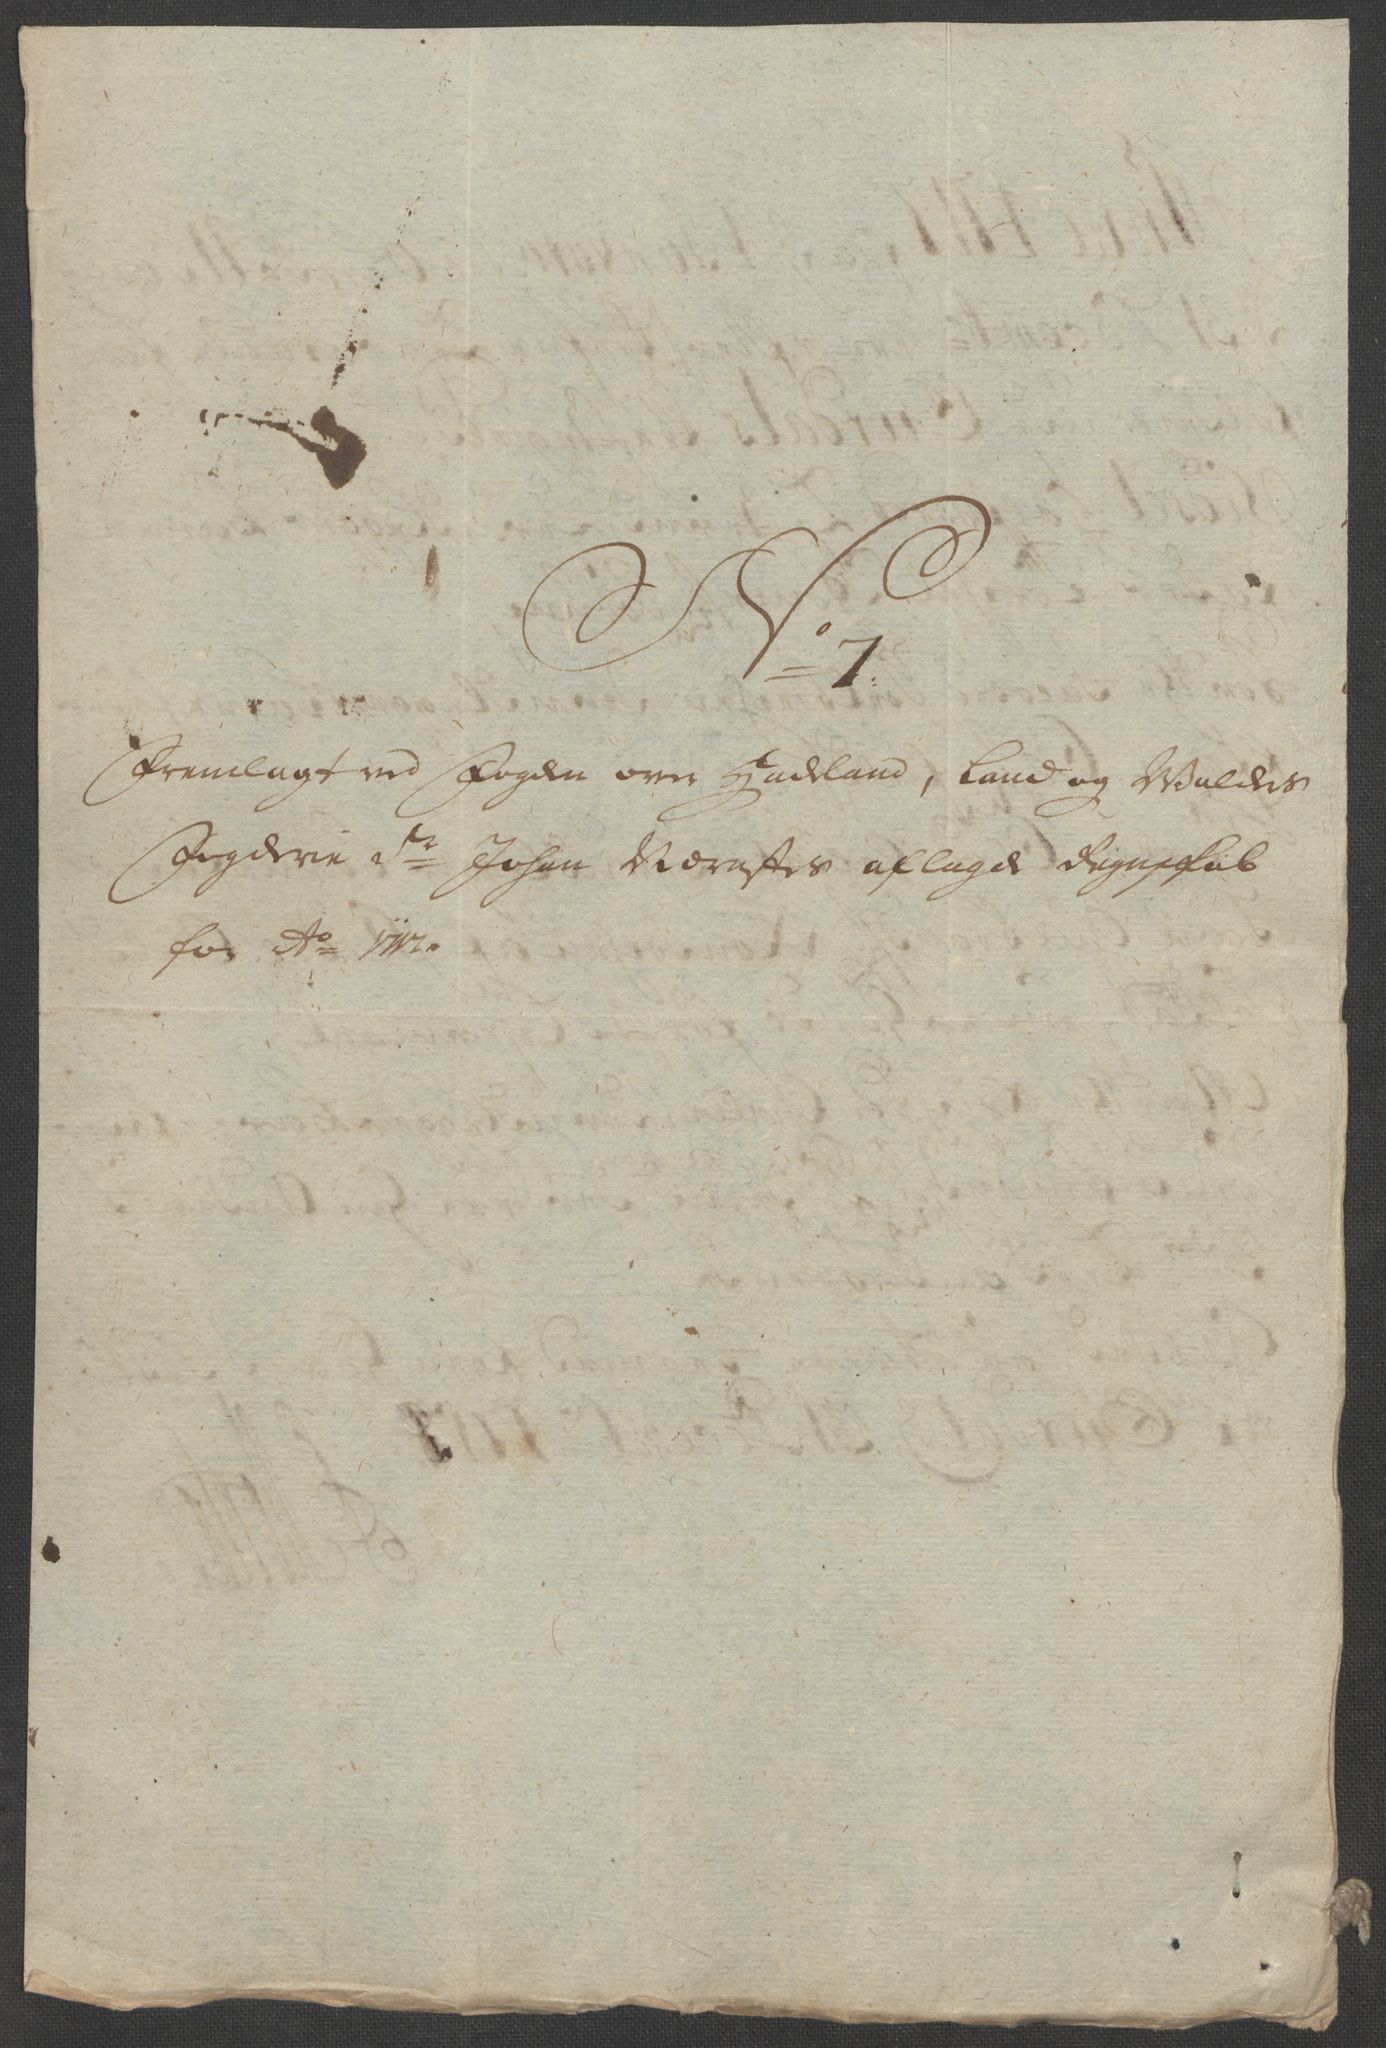 No 7.
Fremlagt ved Fogden over Hadeland, Land og Walders
Fogderie Sr Johan Næraftes aflagde Regnskab
for Ao 1712.